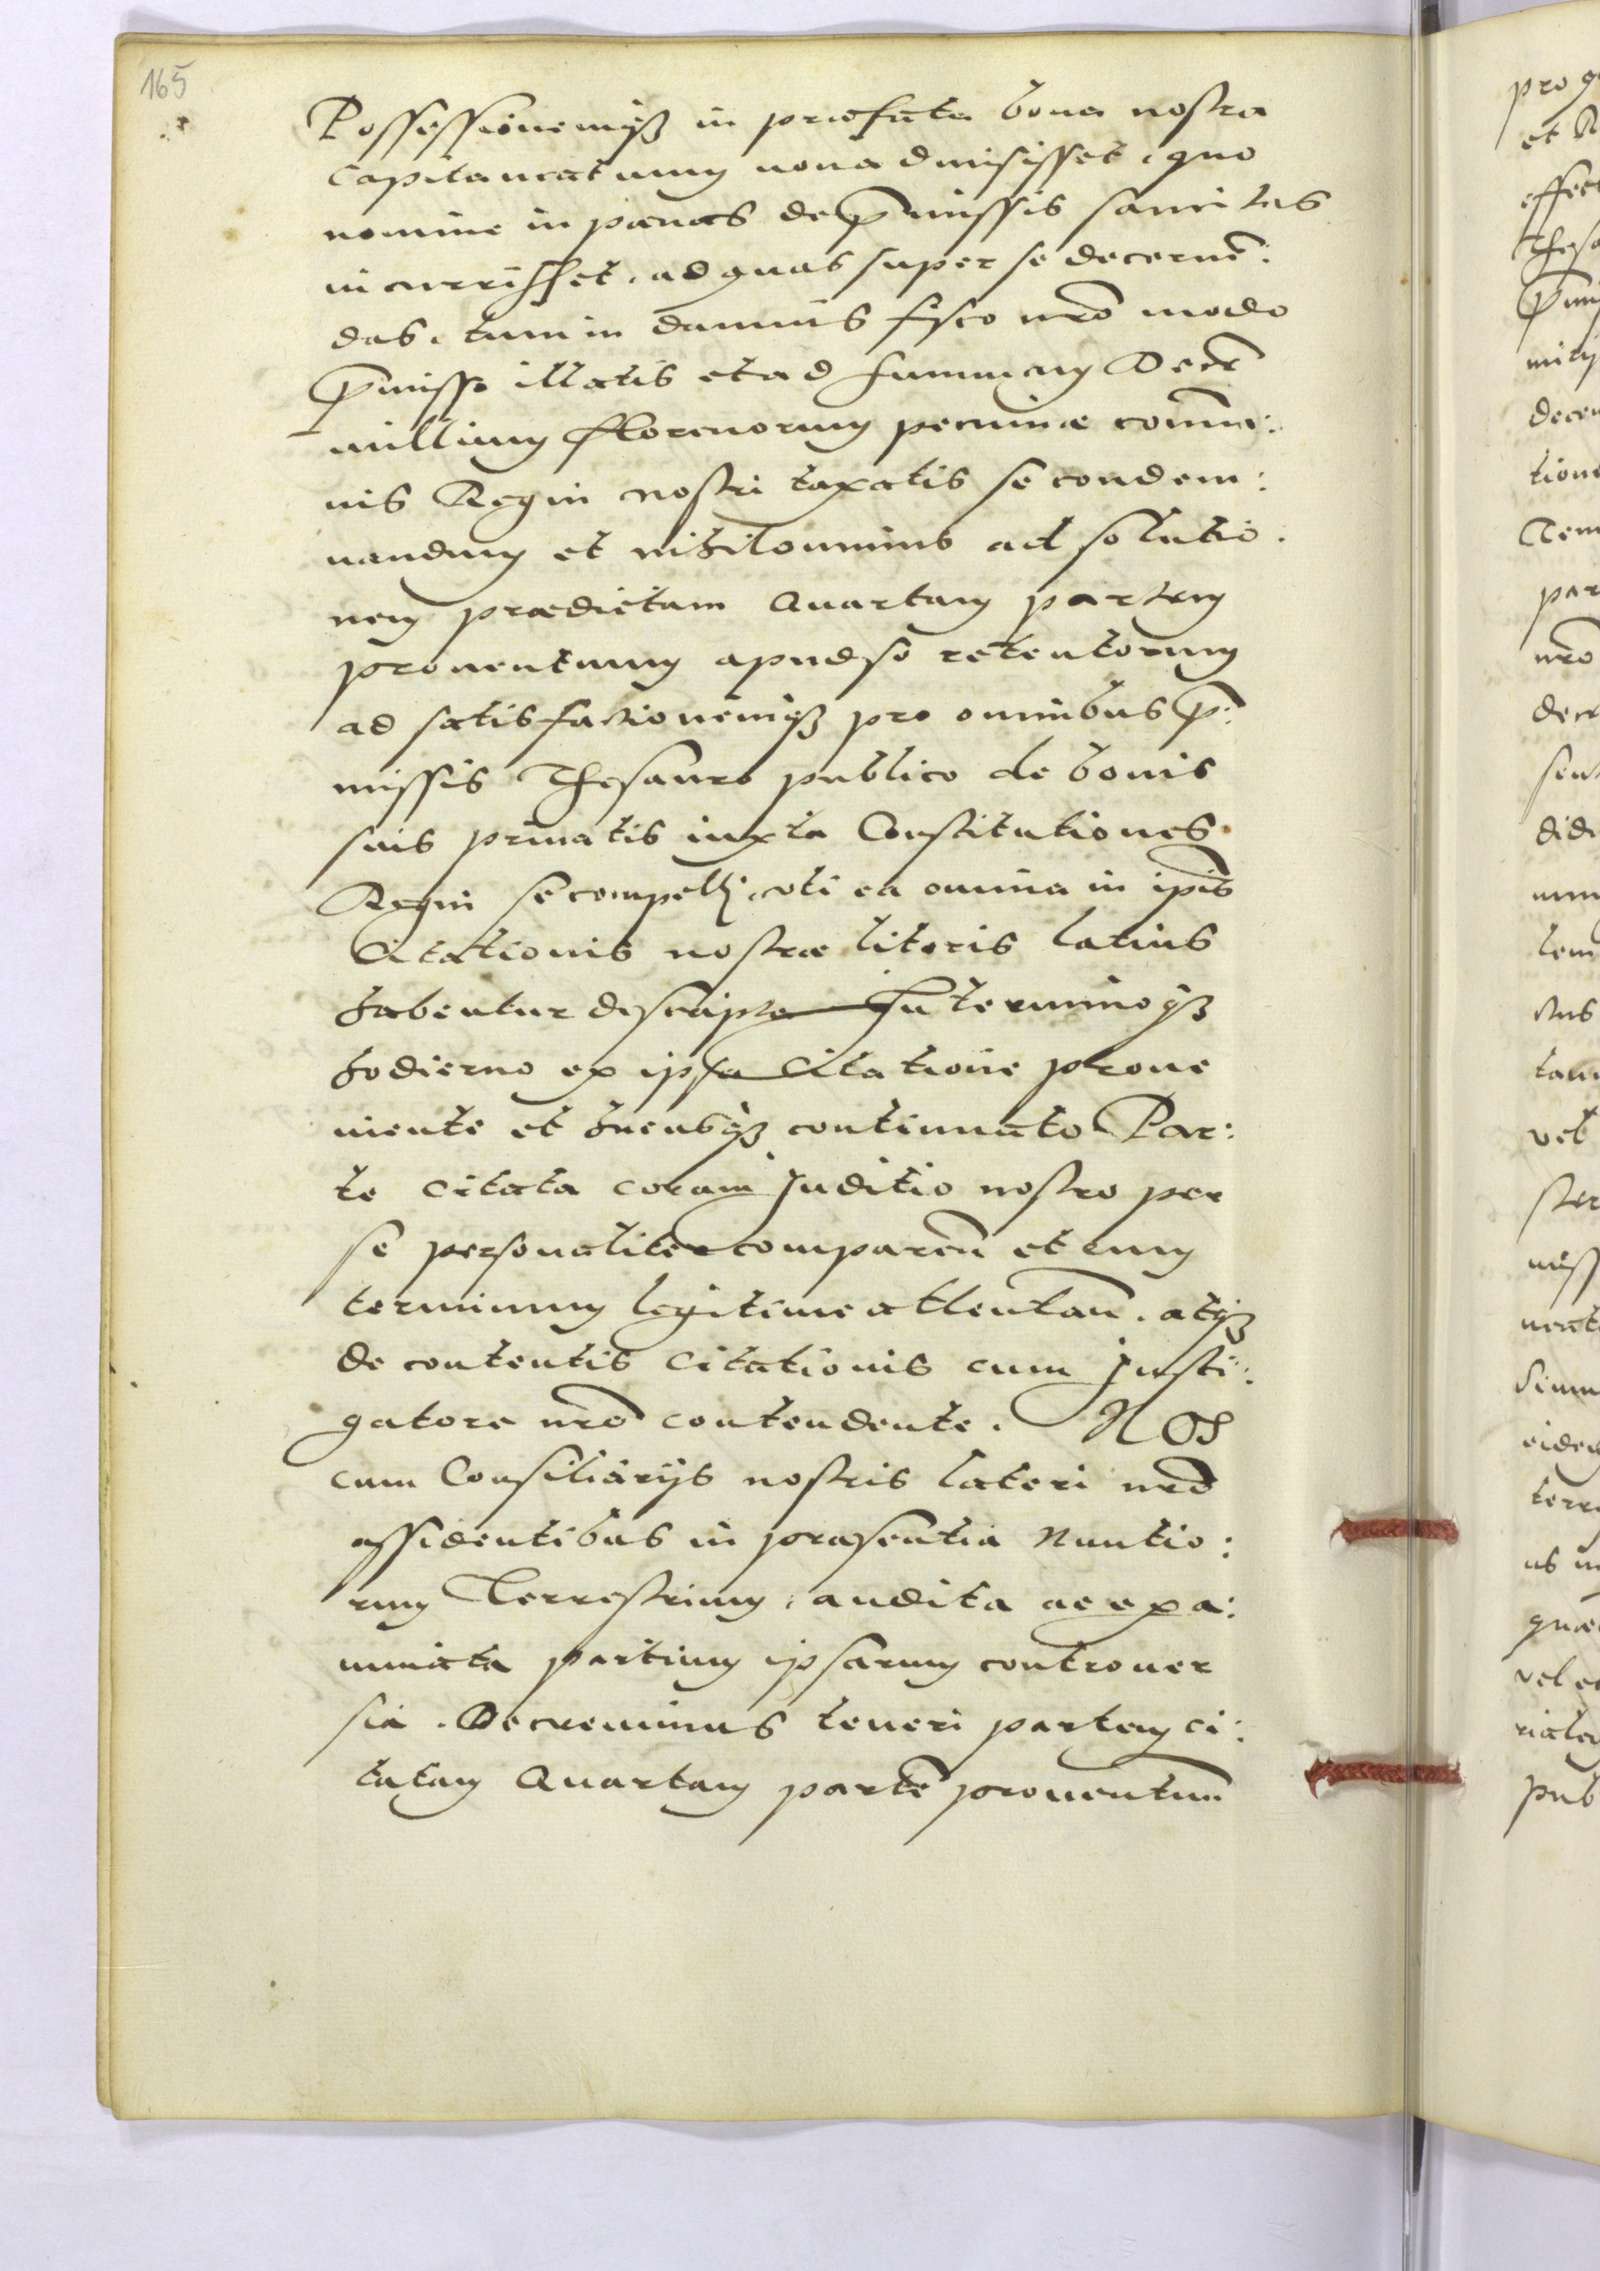 165
Possessionemqȝ in præfata bona nostra
Capitaneatuum non admisisset, quo
nomine in pænas de p̄missis sancitas
incurrisset. ad quas super se decernē:
das. tum in damnis fisco nrō modo
p̄misso illatis et ad summam Decē
millium florenorum pecuniæ commu:
nis Regni nostri taxatis se condem:
nandum et nihilominus ad solutio:
nem prædictam Quartam partem
prouentuum apud se retentorum
ad satisfactionemqȝ pro omnibus p̄:
missis Thesauro publico de bonis
suis priuatis iuxta Constitutiones
Regni se compelli. vti ea omnia in ipsīs
Citationis nostræ literis latius
habentur descripta In terminoqȝ
hodierno ex ipsa Citatione proue
niente et hucusqȝ continuato Par:
te Citata coram Juditio nostro per
se personaliter comparen̄ et eum
terminum legitime attentan̄. atqȝ
de contentis Citationis cum Insti:
gatore nrō contendente. NOS
cum Consiliarijs nostris lateri nrō
assidentibus in præsentia Nuntio:
rum Terrestrium, audita ac exa:
minata partium ipsarum controuer
sia. Decreuimus teneri partem ci:
tatam Quartam partē prouentuum
pro
et
Thesa
nrō
vel
pub